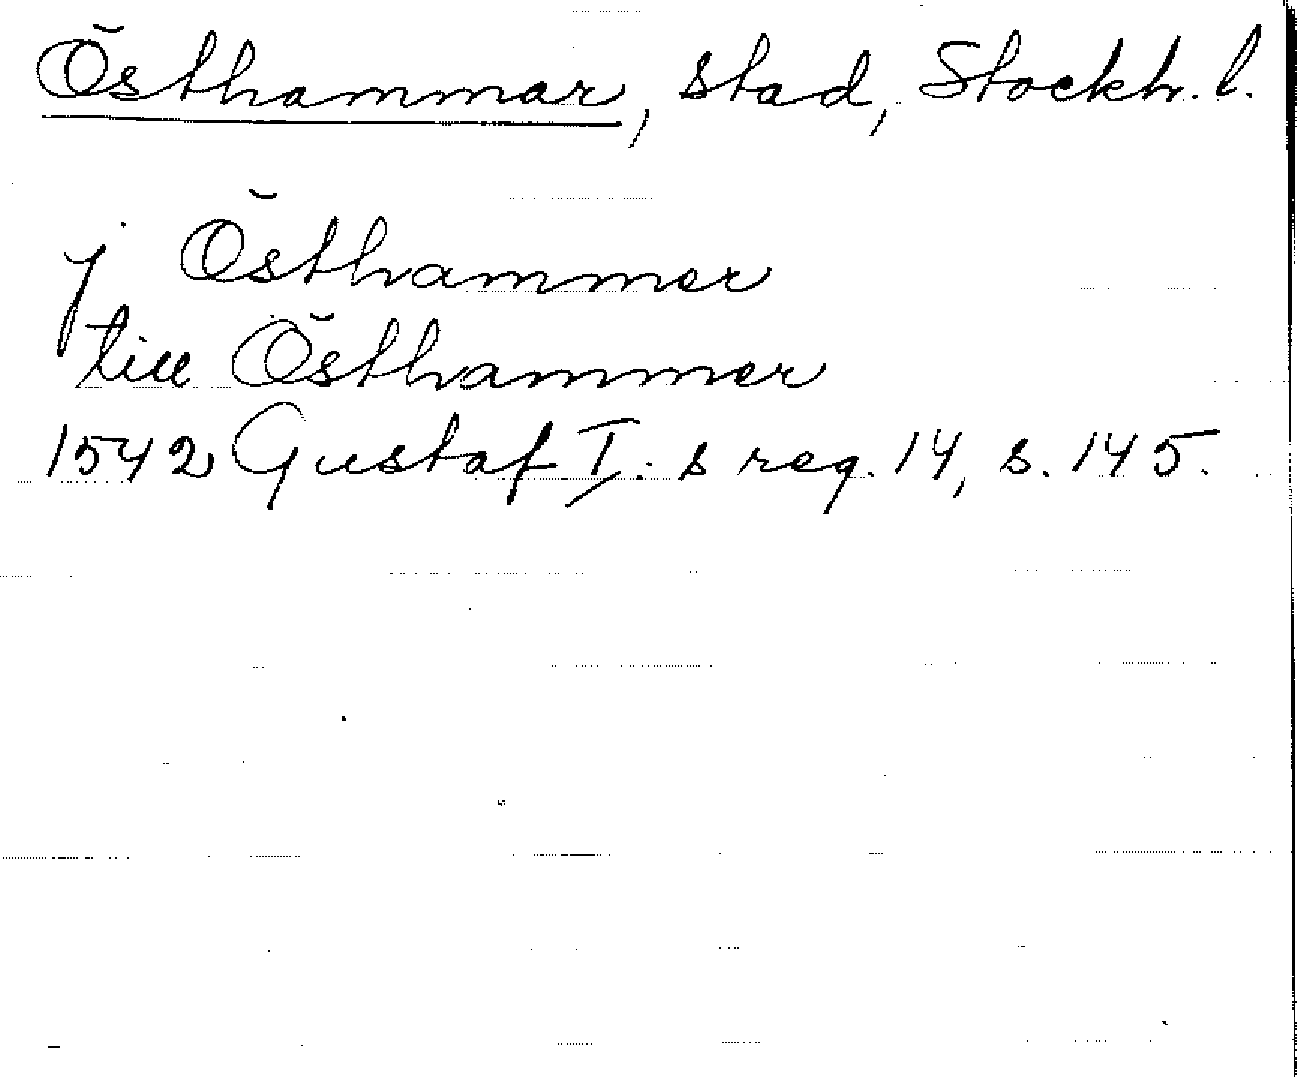 Östhammar, stad, Stockh. l.
j Östhammer
till Östhammer
1542 Gustaf I: s reg. 14, s. 145.